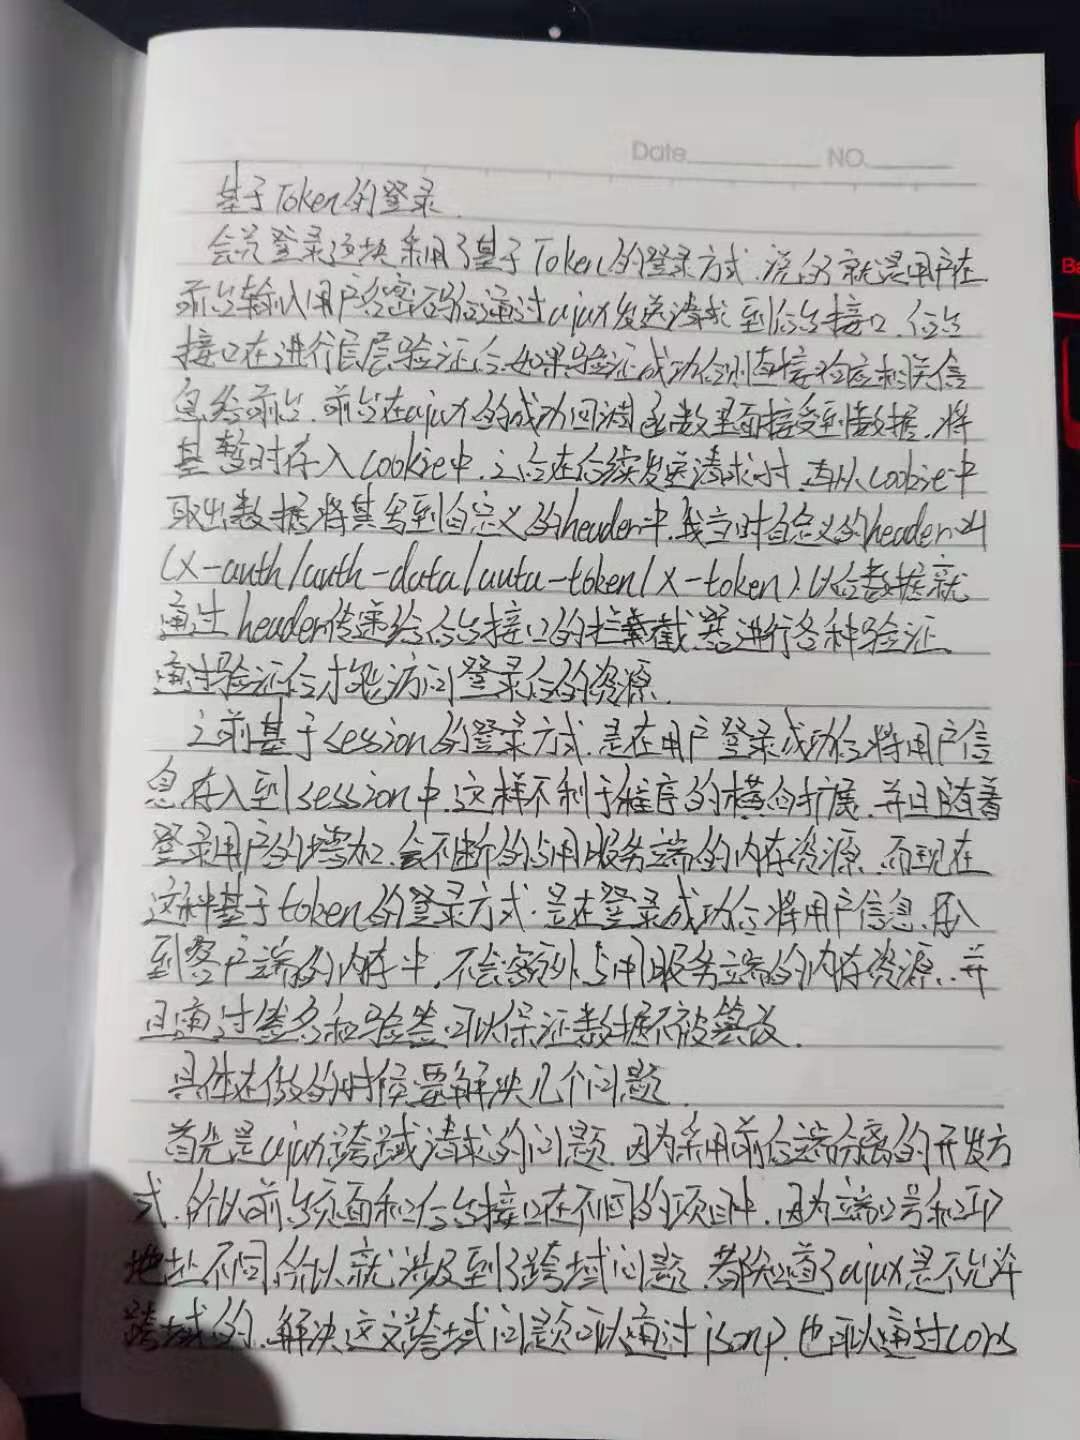 Date NO.
基于Token的登录.
会员登录这块采用了基于Token的登录方式.说的就是用户在
前台输入用户名密码后通过ajax发送请求到后台接口.后台
接口在进行层层验证后.如果验证成功后则直接响应相关信
息给前台.前台在ajax的成功回调函数里面接受到数据.将
其暂时存入cookie中.之后在后续发送请求时.再从cookie中
取出数据将其写到自定义的header中.我当时自定义的header叫
(x-auth/auth-data/auta-token/x-token).以后数据就
通过header传递给后台接口的拦截器进行各种验证.
通过验证后才能访问登录后的资源.
之前基于session的登录方式.是在用户登录成功后将用户信
息存入到session中.这样不利于程序的横向扩展.并且随着
登录用户的增加.会不断的占用服务端的内存资源.而现在
这种基于token的登录方式.是在登录成功后将用户信息存入
到客户端的内存中.不会额外占用服务端的内存资源.并
且通过签名和验签.可以保证数据不被篡改.
具体在做的时候要解决几个问题.
首先是ajax跨域请求的问题.因为采用前后端分离的开发方
式.所以前台页面和后台接口在不同的项目中.因为端口号和IP
地址不同所以就涉及到了跨域问题.都知道了ajax是不允许
跨域的.解决这次跨域问题可以通过jsonp.也可以通过cors